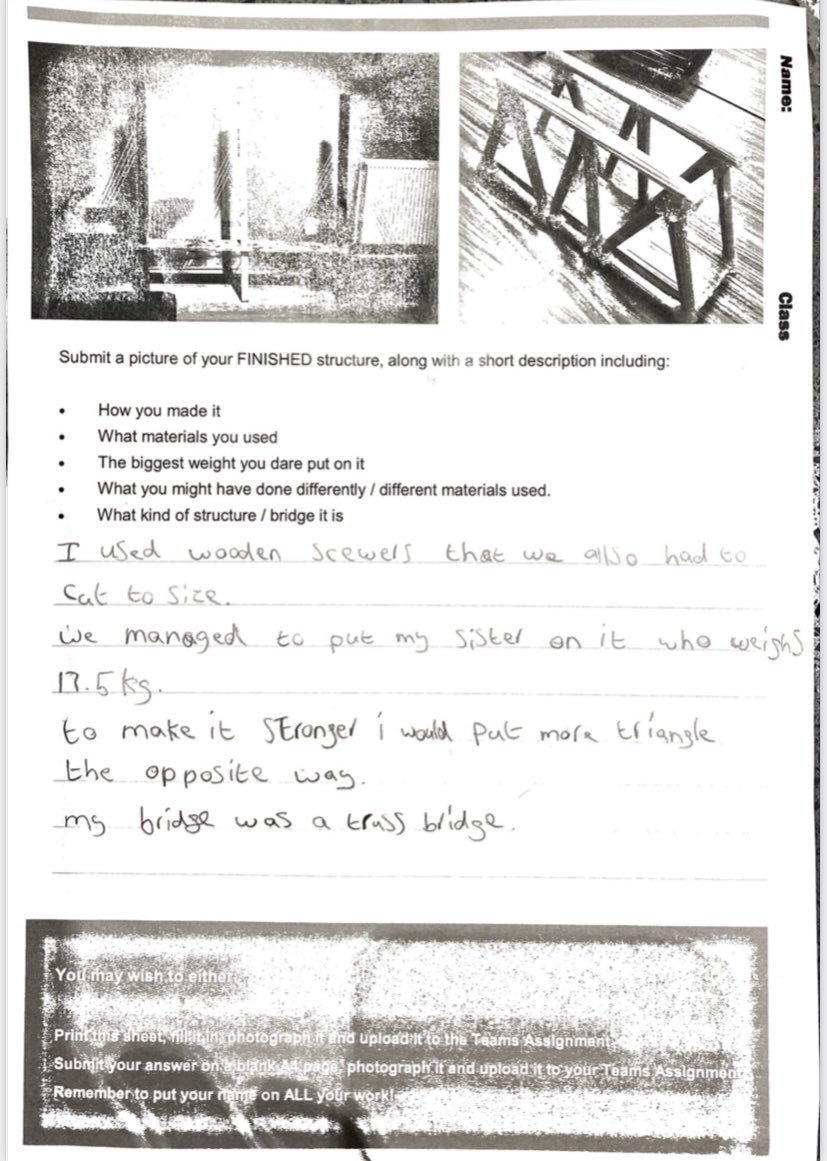 Name:
Class
Submit a picture of your FINISHED structure, along with a short description including:
• How you made it
• What materials you used
• The biggest weight you dare put on it
• What you might have done differently / different materials used.
• What kind of structure / bridge it is
I used wooden scewers that we allso had to
cut to size.
we managed to put my sister on it who weighs
17.5 kg.
to make it stronger i would put more triangle
the opposite way.
my bridge was a truss bridge.
You may wish to either:
Print this sheet, fill it in, photograph it and upload it to the Teams Assignment.
Submit your answer on a blank A4 page, photograph it and upload it to your Teams Assignment
Remember to put your name on ALL your work!